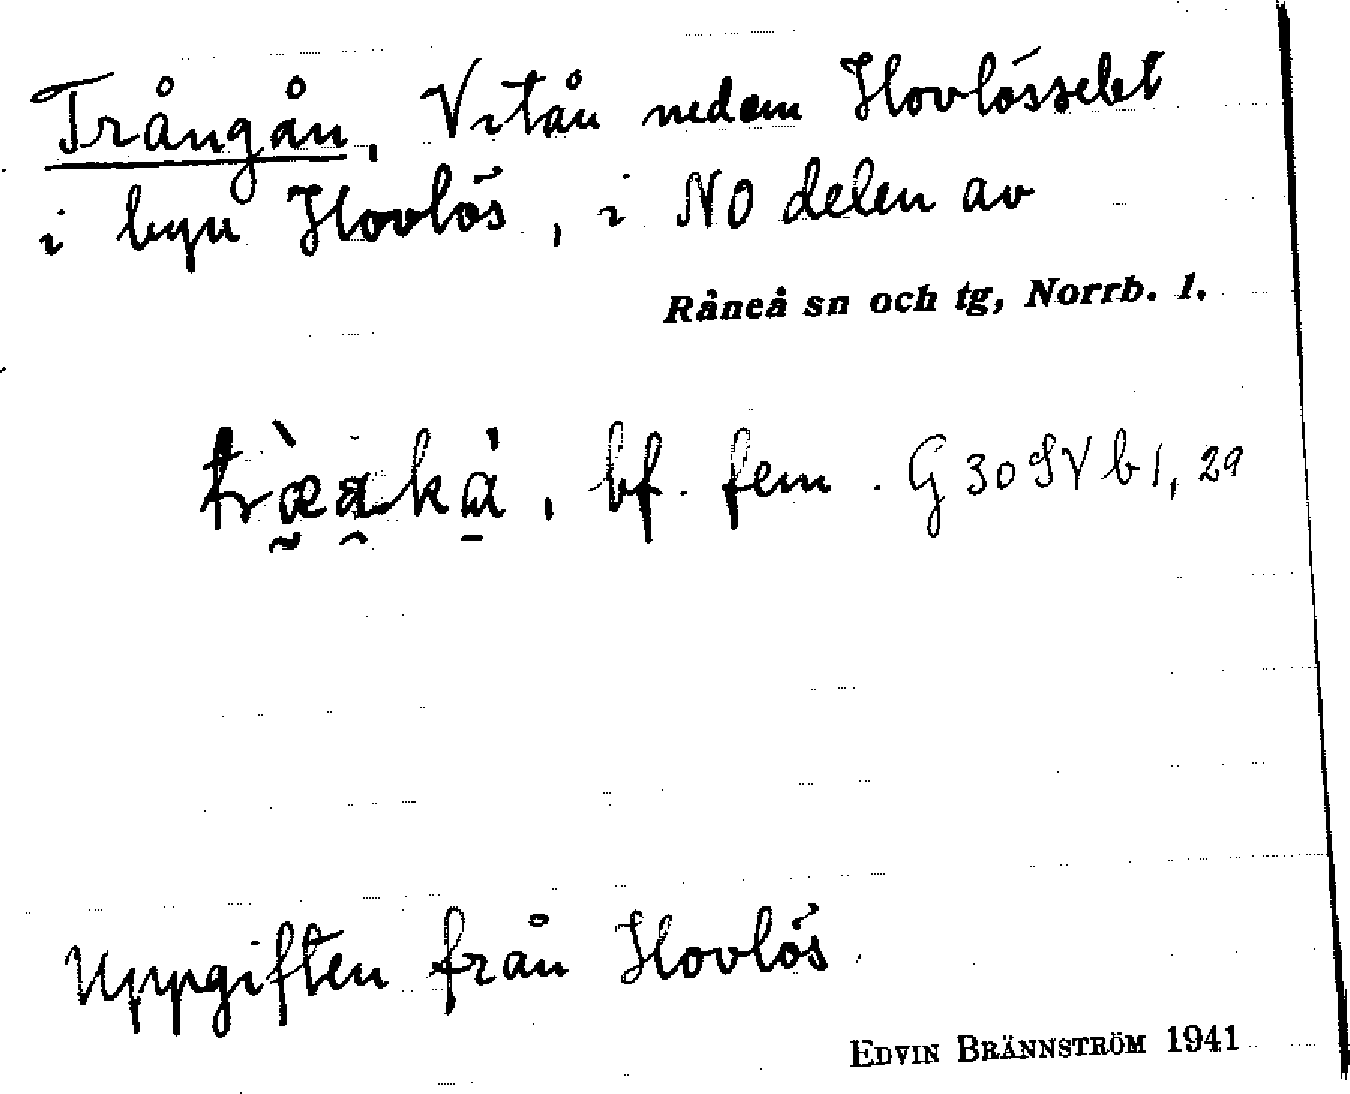 Trångån, Vitån nedom Hovlösselet
i byn Hovlös, i NO delen av
Råneå sn och tg, Norrb. l.
bf. fem. G 30 SV b 1, 29
Uppgiften från Hovlös
EDVIN BRÄNNSTRÖM 1941